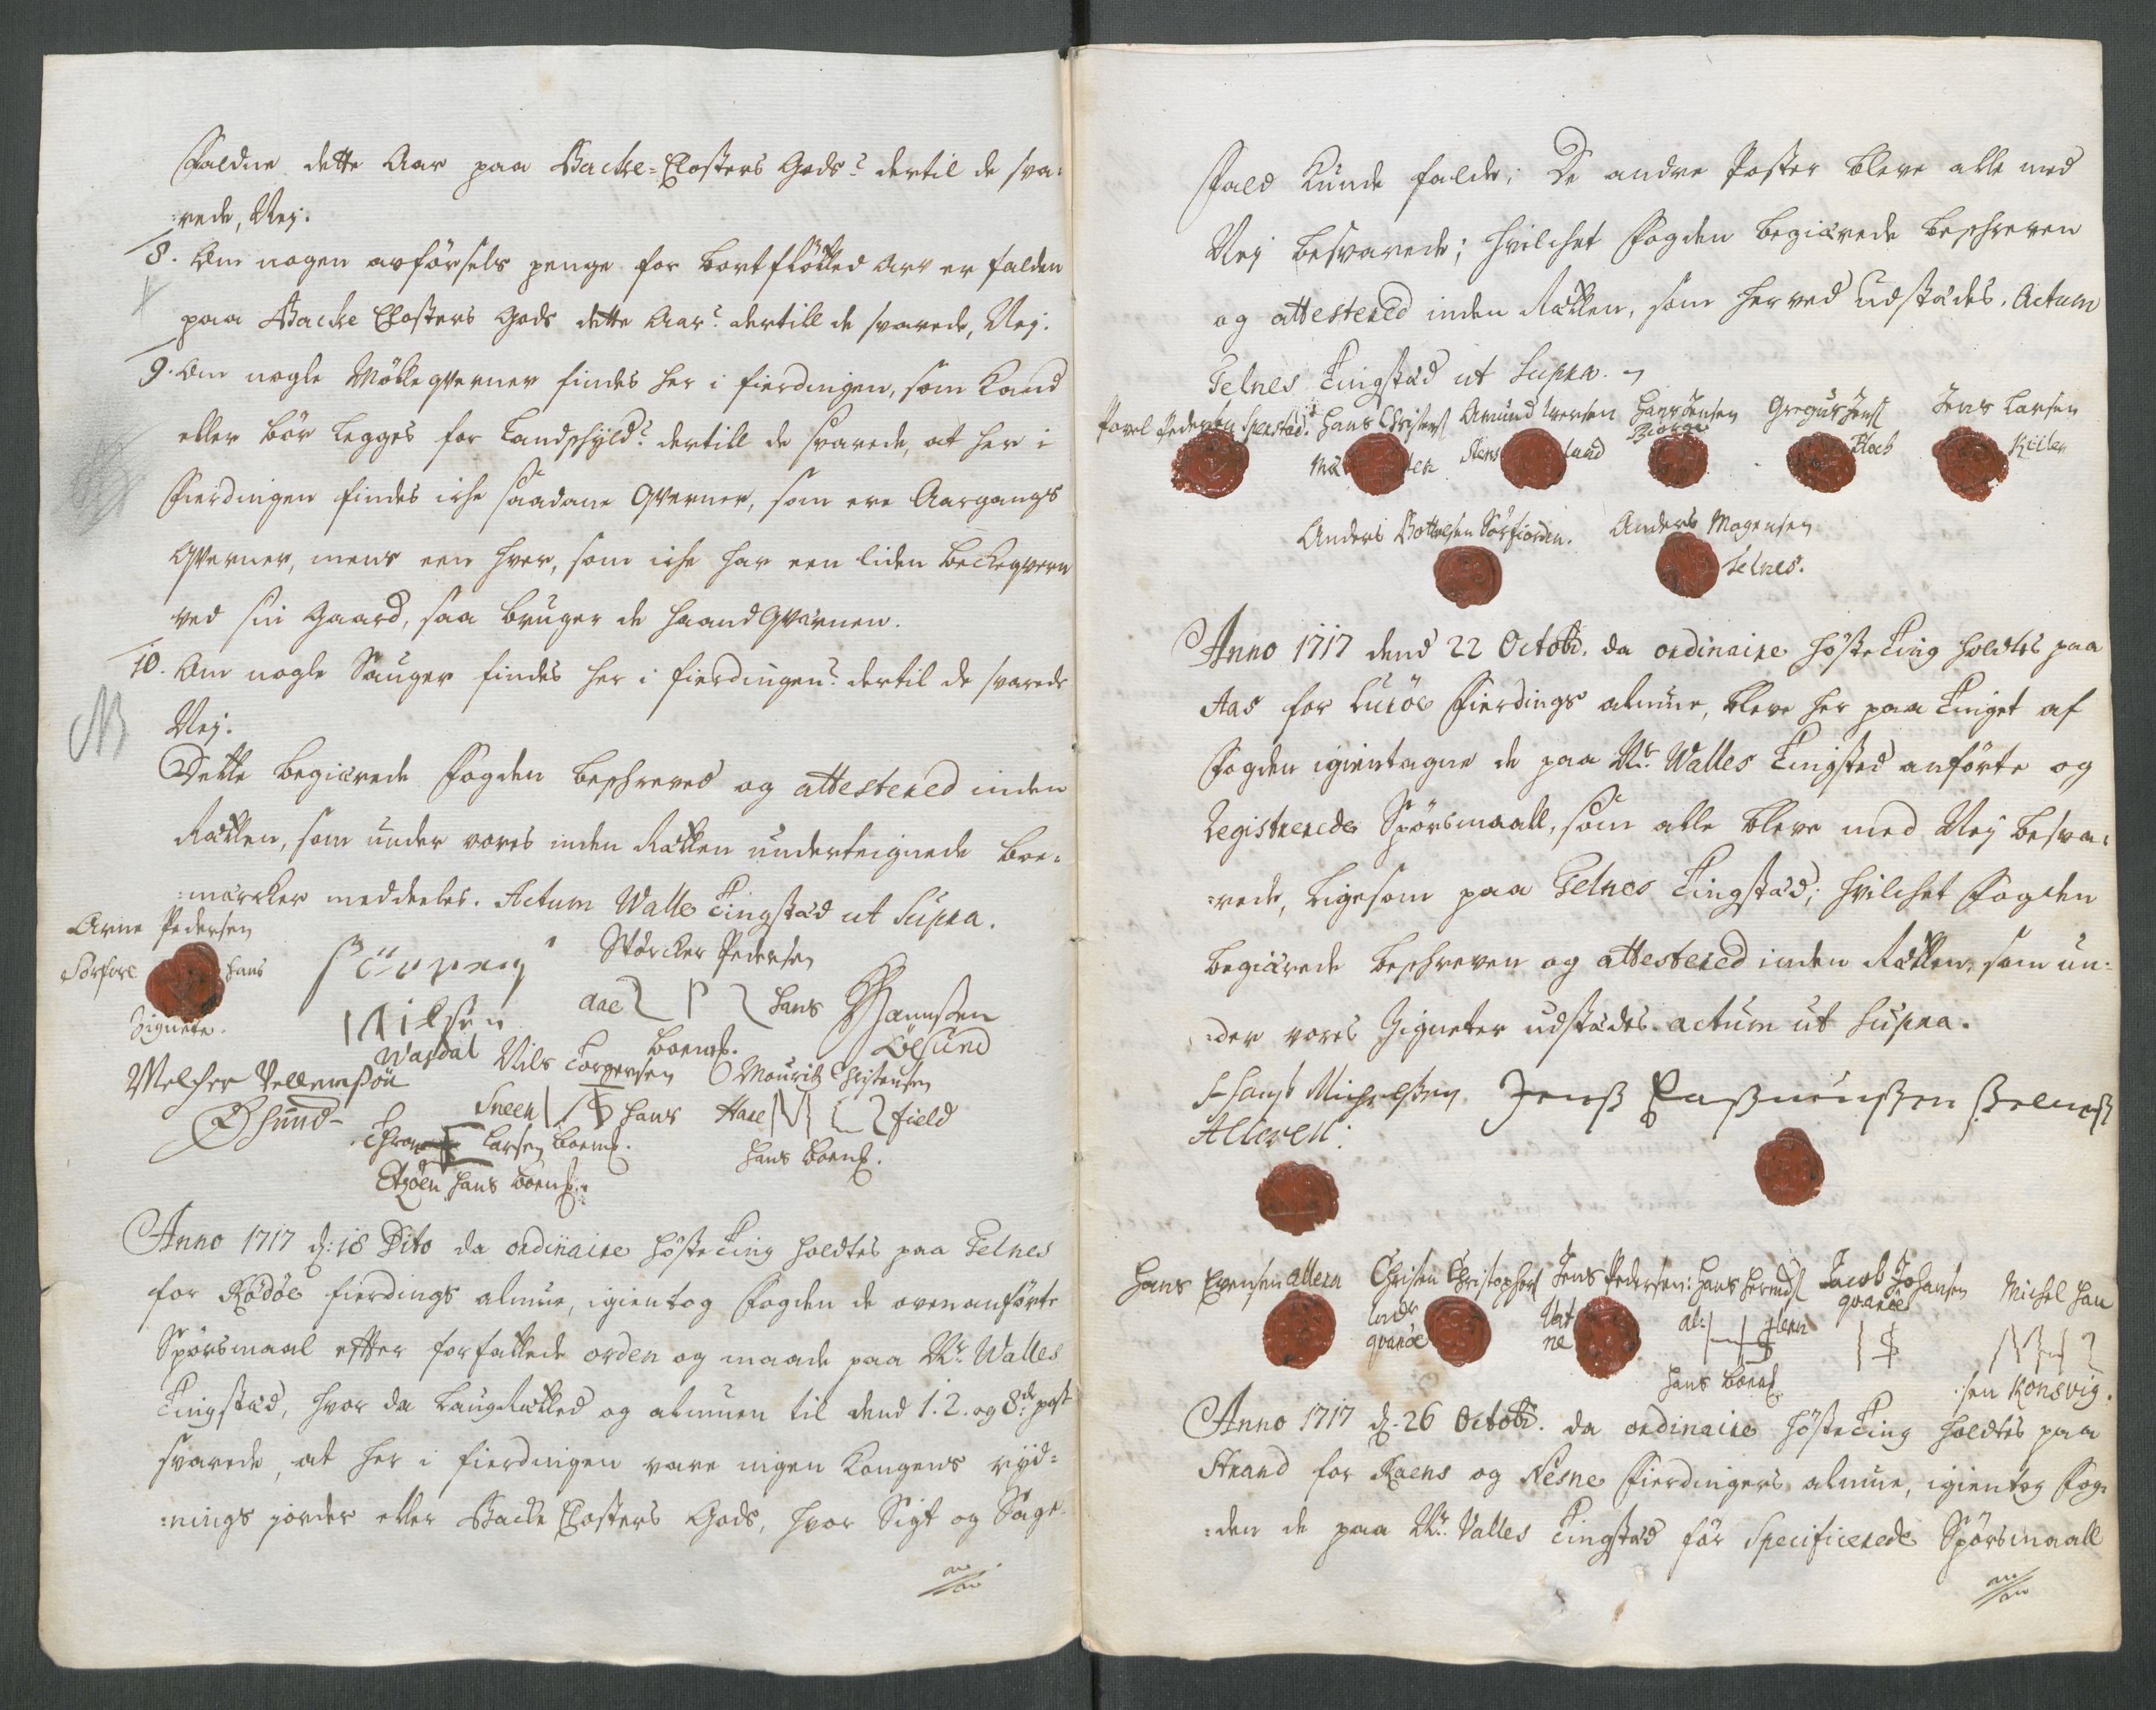 Faldne dette Aar paa Backe-Closters Gods? dertil de sva-
:rede, Nej.
8. Om nogen avførsels penge for bortfløtted Arv er falden
paa Backe Closters Gods dette Aar? dertill de svarede, Nej.
9. Om nogle Mølleqverner findes her i fierdingen, som kand
eller bør legges for Landschyld? dertill de svarede, at her i
Fierdingen findes iche saadane Qverner, som ere Aargangs
Qverner, mens een hver, som iche har een liden Beckeqvern
ved sin Gaard, saa bruger de haandQvernen.
10. Om nogle Sauger findes her i fierdingen? dertil de svarede
Nej.
Dette begiærede Fogden beschreved og attestered inden
Rætten, som under vores inden Rætten underteignede boe-
:mærcker meddeeles. Actum Walle Tingstæd ut Supra.
Arne Pedersen
Sørfore hans
Zignete.
Nilsen
Wasdal
Størcker Pedersen
Aae hans
boemk.
Hannssen
Løesund
Melcher Pellemsøn
Øhsund
Nils Torgersen
Sneen hans
Mouritz Christensen
Haxe field
hans boemk.
Larsen boemk.
hans boemk.
Anno 1717 d: 18 Dito da ordinaire Høste Ting holdtes paa Telnes
for Rødøe fierdings almue, igientog Fogden de ovenanførte
Spørsmaal efter forfattede orden og maade paa Nr. Walles
Tingstæd, hvor da Laugrætted og almuen til dend 1. 2. og 8de post
svarede, at her i fierdingen vare ingen Kongens ryd-
:nings jorder eller Backe Closters Gods, hvor Sigt og Sage-
Fald kunde falde; De andre Poster bleve alle med
Nej besvarede; hvilchet Fogden begiærede beschreven
og attestered inden Rætten, som herved udstædes. Actum
Telnes Tingstæd ut Supra.
Povel Pedersen Spexstad. Hans Christens Amund Iversen Hans Jensen Gregus Jens Jens Larsen
Stens land Biørge Bloch Kiilen
Anders Bottolsen Sørfiorden. Anders Mogensen
Telnes.
Anno 1717 dend 22 Octobr. da ordinaire Høste Ting holdtes paa
Aas for Lurøe Fierdings almue, bleve her paa Tinget af
Fogden igientagne de paa Nr. Walles Tingsted anførte og
Registrerede Spørsmaall, som alle bleve med Nej besva-
:rede, ligesom paa Telnes Tingstæd; hvilchet Fogden
begiærede beschreven og attestered inden Rætten, som un-
:der vores Zigneter udstædes. actum ut supra.
Hans Michelsen Jenss Rassmussen
Alleren:
Hans Evensen Alleren Christen Christophers Jens Pedersen: Hans Hermds Jacob Johansen Michel Han
Indr
qvarøe Vat
ne qvarøe
hans boemk. :sen Konsvig.
Anno 1717 d. 26 Octobr. da ordinaire Høste Ting holdtes paa
Strand for Raens og Nesne Fierdingers almue, igientog Fog-
:den de paa Nr. Valles Tingstæd før Specificerede Spørsmaall